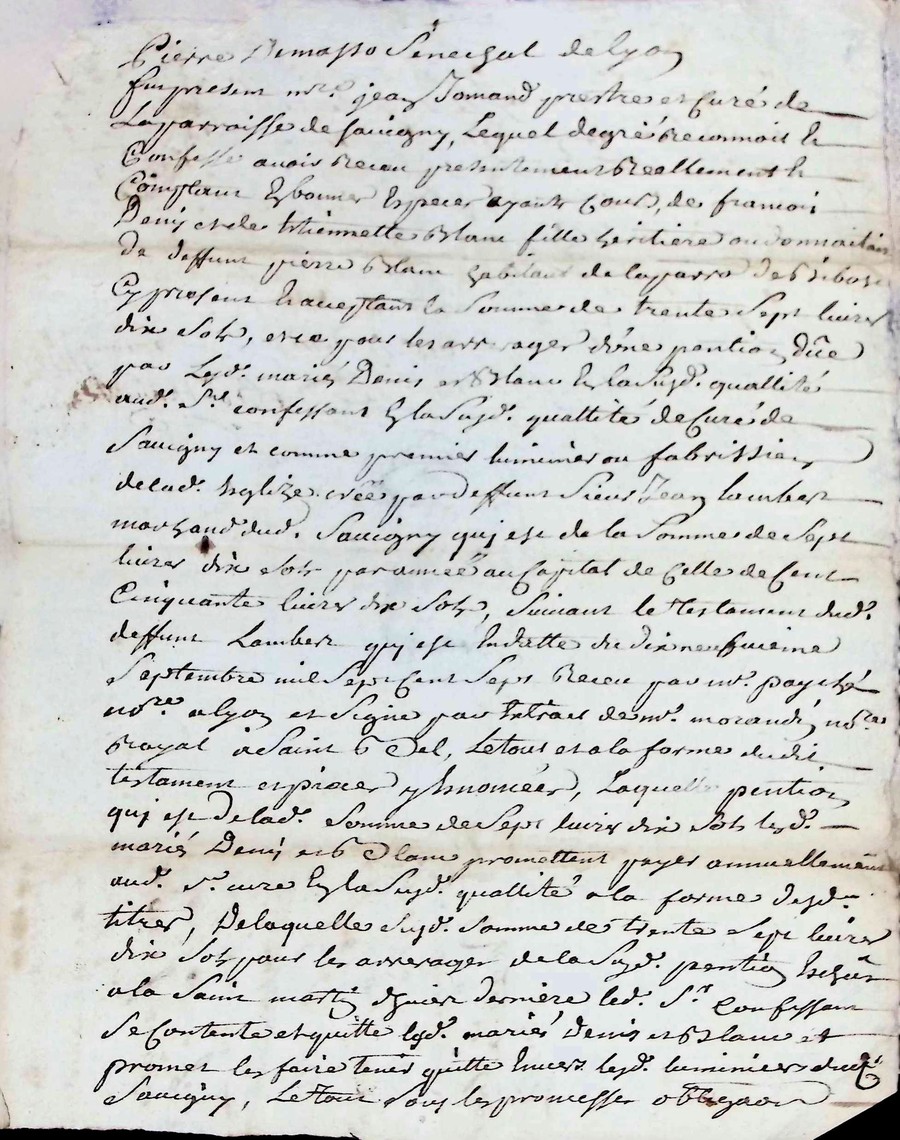 Pierre Demasso Senechal de lyon
Fut present mre. jean Jomand prestre et Curé de
La parroisse de Savigny, Lequel de gré Reconnoit et
Confesse avoir Receu presentement Reellement et
Comptant En bonnes Especes ayants Cours, de francois
Denis et de Etiennette Blanc fille heritiere ou donnataire
de deffunt pierre Blanc habitant de la parro. de Bibost
Cy present Et acceptant la Somme de trente Sept livres
dix Sols, et ce pour les arrerages d'une pention düe
par Lesd. mariés Denis et Blanc En la Susd. quallité
aud. Sr. confessant En la Susd. quallité de Curé de
Savigny et comme premier luminier ou fabrissien
de lad. Esglize créée par deffunt Sieur Jean Lambert
marchand dud. Savigny qui est de la Somme de Sept
livres dix Sols par année au Capital de Celle de Cent
Cinquante livres dix Sols, Suivant le testament dud.
deffunt Lambert qui est En datte du dix neufvieme
Septembre mil Sept Cent Sept Receu par me.
nore. a lyon et Signé par Extrait de me. morandy nore.
Royal à Saint Bel, Le tout et a la forme dudit
testament et pieces y Enoncées, Laquelle pention
qui est De lad. Somme de Sept livres dix Sols lesd.
mariés Denis et Blanc promettent payer annuellement
aud. Sr. curé En la Susd. quallité a la forme desd.
titres, De laquelle Susd. Somme de trente Sept livres
dix Sols pour les arrerages de la Susd. pention Escheus
a la Saint martin d'hiver derniere led. Sr. Confessant
Se Contente et quitte lesd. mariés Denis et Blanc et
promet les faire tenir quitte Envers lesd. luminiers dud.
Savigny, Le tout Sous les promesses obligaon